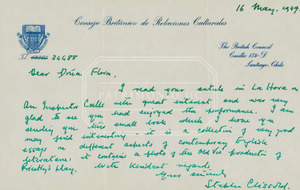 16 May, 1949.
Consejo Británico de Relaciones Culturales
The British Council
Casilla 154-D
Santiago, Chile
36688
Dear Doña Flora,
I read your article in La Hora on
An Inspector Calls with great interest and was very
glad to see you had enjoyed the performance. I am
sending you this small book which I hope you
may find interesting. It is a collection of very good
essays on different aspects of contemporary English
literature. It contains a photo of the Old Vic production of
Priestley's play.
With kindest regards
Yours sincerely
Stephen Clissold.